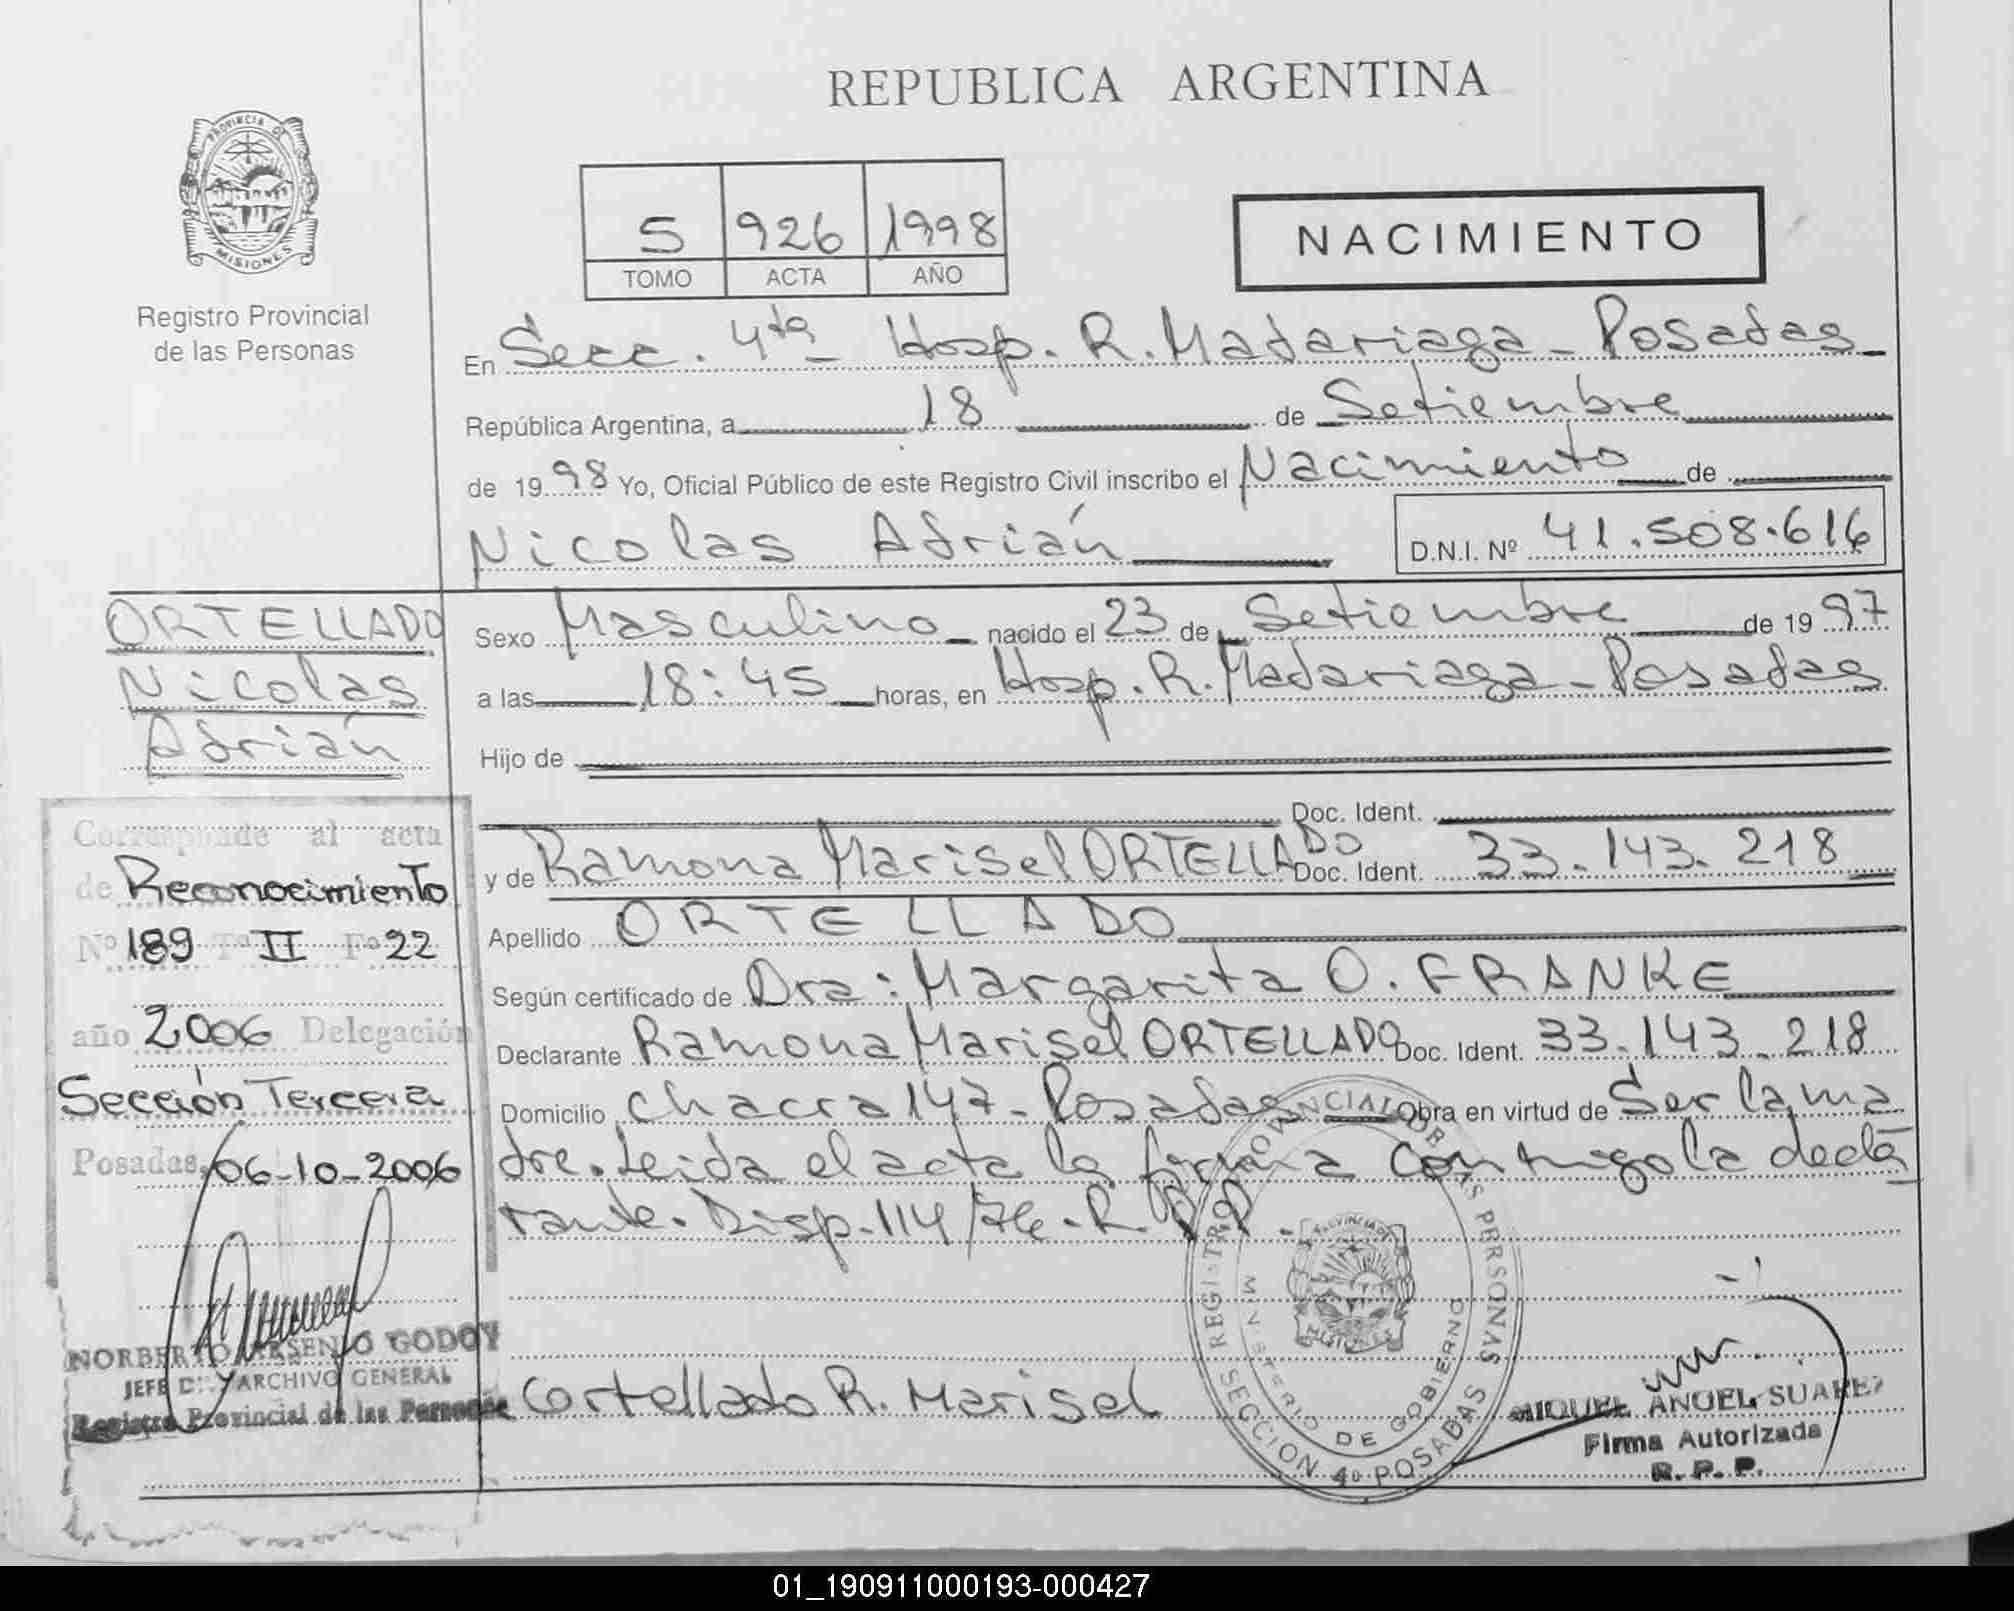 REPUBLICA ARGENTINA
PROVINCIA DE
MISIONES
Registro Provincial
de las Personas
5 926 1998
TOMO ACTA AÑO
NACIMIENTO
En Secc. 4ta - Hosp. R. Madariaga - Posadas
República Argentina, a 18 de Setiembre
de 1998 Yo, Oficial Público de este Registro Civil inscribo el Nacimiento de
Nicolas Adrián D.N.I. Nº 41.508.616
ORTELLADO
Nicolas
Adrián
Sexo Masculino nacido el 23 de Setiembre de 1997
a las 18:45 horas, en Hosp. R. Madariaga - Posadas
Hijo de
Doc. Ident.
y de Ramona Marisel ORTELLADO Doc. Ident. 33.143.218
Apellido ORTELLADO
Según certificado de Dra: Margarita O. FRANKE
Declarante Ramona Marisel ORTELLADO Doc. Ident. 33.143.218
Domicilio chacra 147 - Posadas Obra en virtud de Ser la ma
dre. Leida el acta la firma conmigo la decla
rante. Disp. 114/76. R.P.P.
Corresponde al acta
de Reconocimiento
Nº 189 Tº II Fº 22
año 2006 Delegación
Sección Tercera
Posadas, 06-10-2006
NORBERTO ARSENIO GODOY
JEFE D. ARCHIVO GENERAL
Registro Provincial de las Personas
Cortellado R. Marisel
REGISTRO PROVINCIAL DE LAS PERSONAS
MINISTERIO DE GOBIERNO
SECCION 4º POSADAS
MIGUEL ANGEL SUAREZ
Firma Autorizada
R. P. P.
01_190911000193-000427